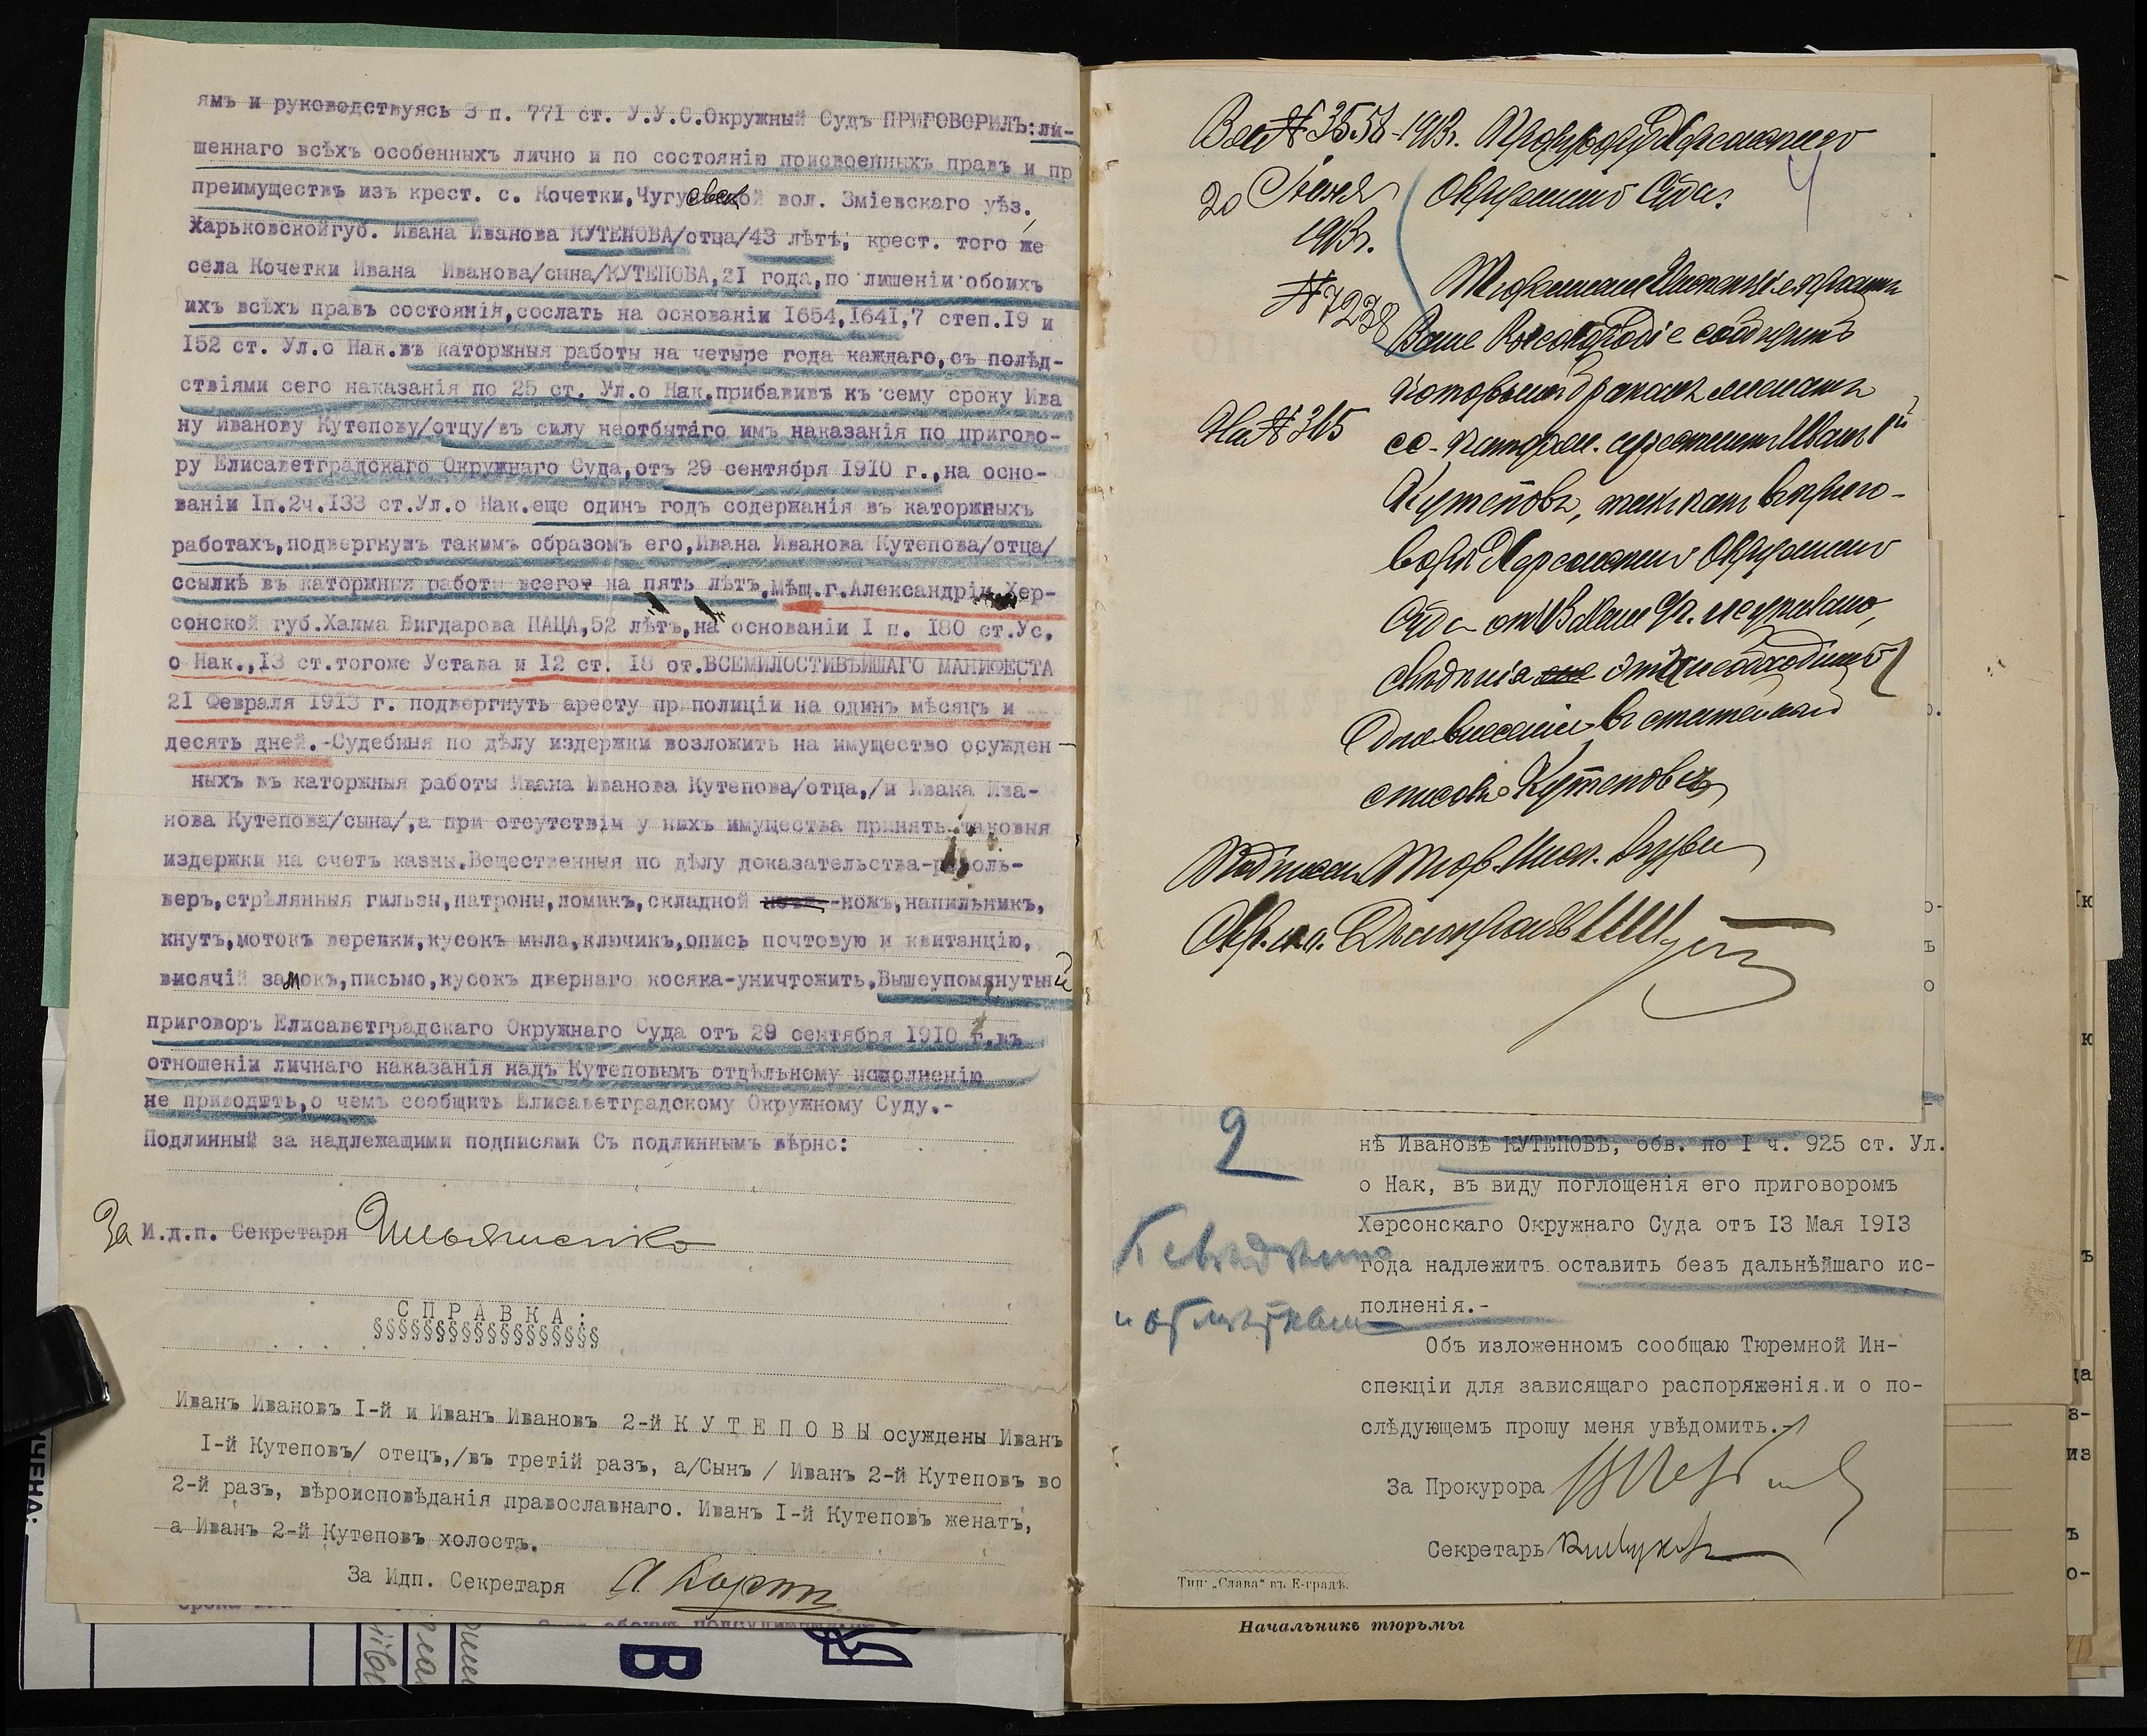 ямъ и руководствуясь 3 п. 771 ст. У.У.С.Окружный Судъ ПРИГОВОРИЛЪ:ли-
шеннаго всѣхъ особенныхъ лично и по состоянію присвоенныхъ правъ и пр
преимуществъ изъ крест. с. Кочетки,Чугуевской вол. Зміевскаго уѣз.,
Харьковскойгуб. Ивана Иванова КУТЕПОВА/отца/43 лѣтъ, крест. того же
села Кочетки Ивана Иванова/сына/КУТЕПОВА,21 года,по лишеніи обоихъ
ихъ всѣхъ правъ состоянія,сослать на основаніи 1654,1641,7 степ.19 и
152 ст. Ул.о Нак.въ каторжныя работы на четыре года каждаго,съ полѣд-
ствіями сего наказанія по 25 ст. Ул.о Нак.прибавивъ къ сему сроку Ива
ну Иванову Кутепову/отцу/въ силу неотбытаго имъ наказанія по пригово-
ру Елисаветградскаго Окружнаго Суда,отъ 29 сентября 1910 г.,на осно-
ваніи Iп.2ч.133 ст.Ул.о Нак.еще одинъ годъ содержанія въ каторжныхъ
работахъ,подвергнувъ такимъ образомъ его,Ивана Иванова Кутепова/отца/
ссылкѣ въ каторжныя работы всего на пять лѣтъ.Мѣщ.г.Александріи Хер-
сонской губ.Хаима Вигдарова ПАЦА,52 лѣтъ,на основаніи I п. 180 ст.Ус.
о Нак.,13 ст.тогоже Устава и 12 ст. 18 от.ВСЕМИЛОСТИВѢЙШАГО МАНИФЕСТА
21 Февраля 1913 г. подвергнуть аресту при полиціи на одинъ мѣсяцъ и
десять дней.-Судебныя по дѣлу издержки возложить на имущество осужден-
ныхъ въ каторжныя работы Ивана Иванова Кутепова/отца,/и Ивана Ива-
нова Кутепова/сына/,а при отсутствіи у нихъ имущества принять таковыя
издержки на счетъ казны.Вещественныя по дѣлу доказательства-револь-
веръ,стрѣлянныя гильзы,патроны,ломикъ,складной -ножъ,напильникъ,
кнутъ,мотокъ веревки,кусокъ мыла,ключикъ,опись почтовую и квитанцію,
висячій замокъ,письмо,кусокъ двернаго косяка-уничтожить.Вышеупомянутый
приговоръ Елисаветградскаго Окружнаго Суда отъ 29 сентября 1910 г.въ
отношеніи личнаго наказанія надъ Кутеповымъ отдѣльному исполненію
не приводить,о чемъ сообщить Елисаветградскому Окружному Суду.-
Подлинный за надлежащими подписями Съ подлиннымъ вѣрно:
За И.д.п. Секретаря Ильяшенко
СПРАВКА:
§§§§§§§§§§§§§§§§§§
Иванъ Ивановъ I-й и Иванъ Ивановъ 2-й К У Т Е П О В Ы осуждены Иванъ
I-й Кутеповъ/ отецъ,/въ третій разъ, а/Сынъ / Иванъ 2-й Кутеповъ во
2-й разъ, вѣроисповѣданія православнаго. Иванъ I-й Кутеповъ женатъ,
а Иванъ 2-й Кутеповъ холостъ.
За Идп. Секретаря
В
№ 3558-1913г. Прокурору Херсонскаго
Окружного Суда.
20 Іюня
1913г.
№ 7238
Тюремная Инспекція проситъ
Ваше Высокородіе сообщить
На № 365
которымъ бракомъ женатъ
сс.-каторжн. арестантъ Иванъ 1й
Кутеповъ, такъ какъ въ приго-
ворѣ Херсонскаго Окружного
Суда отъ 13 Мая с/г. не указано,
свѣдѣнія эти необходимо
для внесенія въ статейный
списокъ Кутепова
Подписалъ Тюр. Инсп.
2
нѣ Ивановѣ КУТЕПОВѢ, обв. по I ч. 925 ст. Ул.
о Нак, въ виду поглощенія его приговоромъ
Херсонскаго Окружнаго Суда от 13 Мая 1913
года надлежитъ оставить безъ дальнѣйшаго ис-
полненія.-
Къ свѣдѣнію
Объ изложенномъ сообщаю Тюремной Ин-
спекціи для зависящаго распоряженія и о по-
слѣдующемъ прошу меня увѣдомить.-
За Прокурора
Секретарь
Тип: „Слава" въ Е-градѣ.
Начальникъ тюрьмы